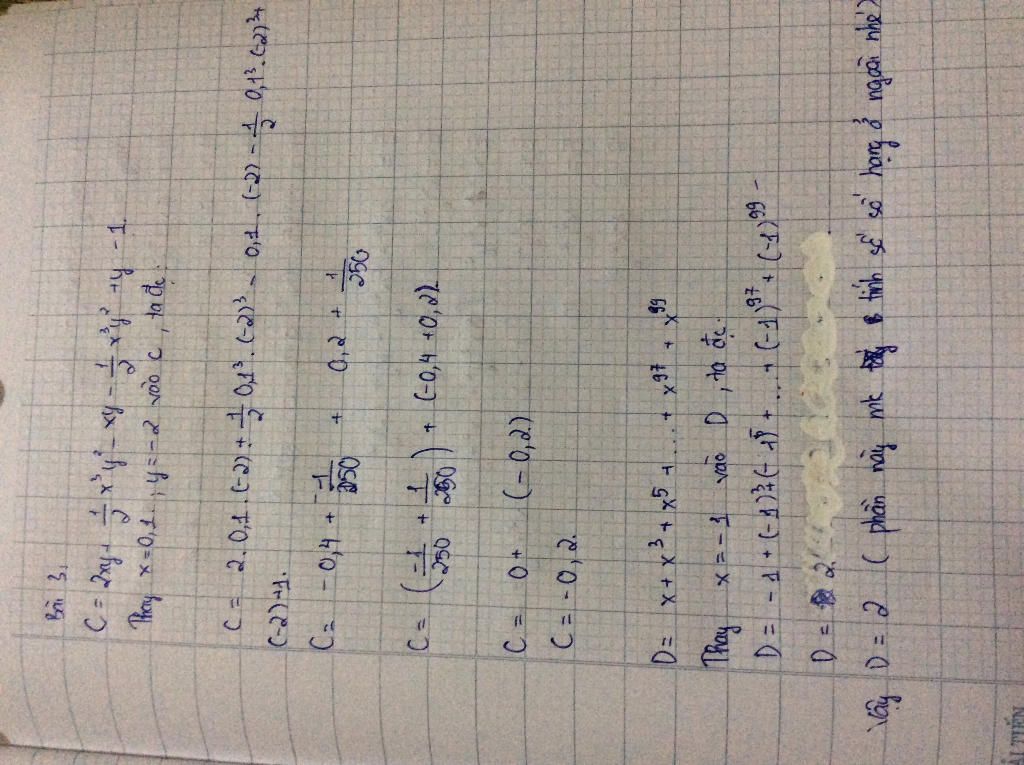 Bài 3.
C = 2xy + 1/2 x³y² - xy - 1/2 x³y² + y - 1.
Thay x = 0,1 ; y = -2 vào C, ta đc:
C = 2. 0,1. (-2) + 1/2 0,1³. (-2)³ - 0,1. (-2) - 1/2 0,1³. (-2)³ +
(-2) + 1.
C = -0,4 + -1/250 + 0,2 + 1/250
C = (-1/250 + 1/250) + (-0,4 + 0,2)
C = 0 + (-0,2)
C = -0,2.
D = x + x³ + x⁵ + ... + x⁹⁷ + x⁹⁹
Thay x = -1 vào D, ta đc:
D = -1 + (-1)³ + (-1)⁵ + ... + (-1)⁹⁷ + (-1)⁹⁹ -
D = 2
Vậy D = 2 ( phần này mk tính số số hạng ở ngoài nhé )
ẢI TIẾN